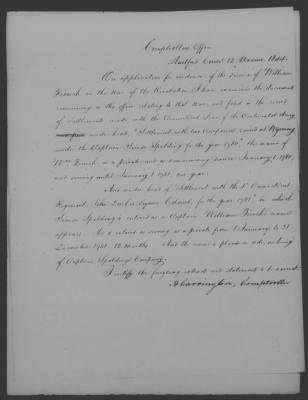 Comptrollers Office
Hartford Conn. 12th 1844.
On application for evidence of the service of William
French in the War of the Revolution I have examined the documents
remaining in this office relating to that War, and find in the record
of Settlements made with the Connecticut Line of the Continental Army
under head, "Settlement with two Companies raised at Wyoming
under the Captain Simon Spalding for the year 1780", the name of
Wm. French, as a private, and as commencing service January 1, 1780,
and serving until January 1, 1781, one year.
And under head of "Settlement with the 1st Connecticut
Regiment, John Durkee Esquire Colonel, for the year 1781," in which
Simon Spalding is entered as a Captain, William French's name
appears. He is entered as serving as a private from 1 January to 31
December 1781, 12 Months. And the name is placed in as being
of Captain Spalding's Company.
I certify the foregoing extract and statement to be correct.
Comptroller